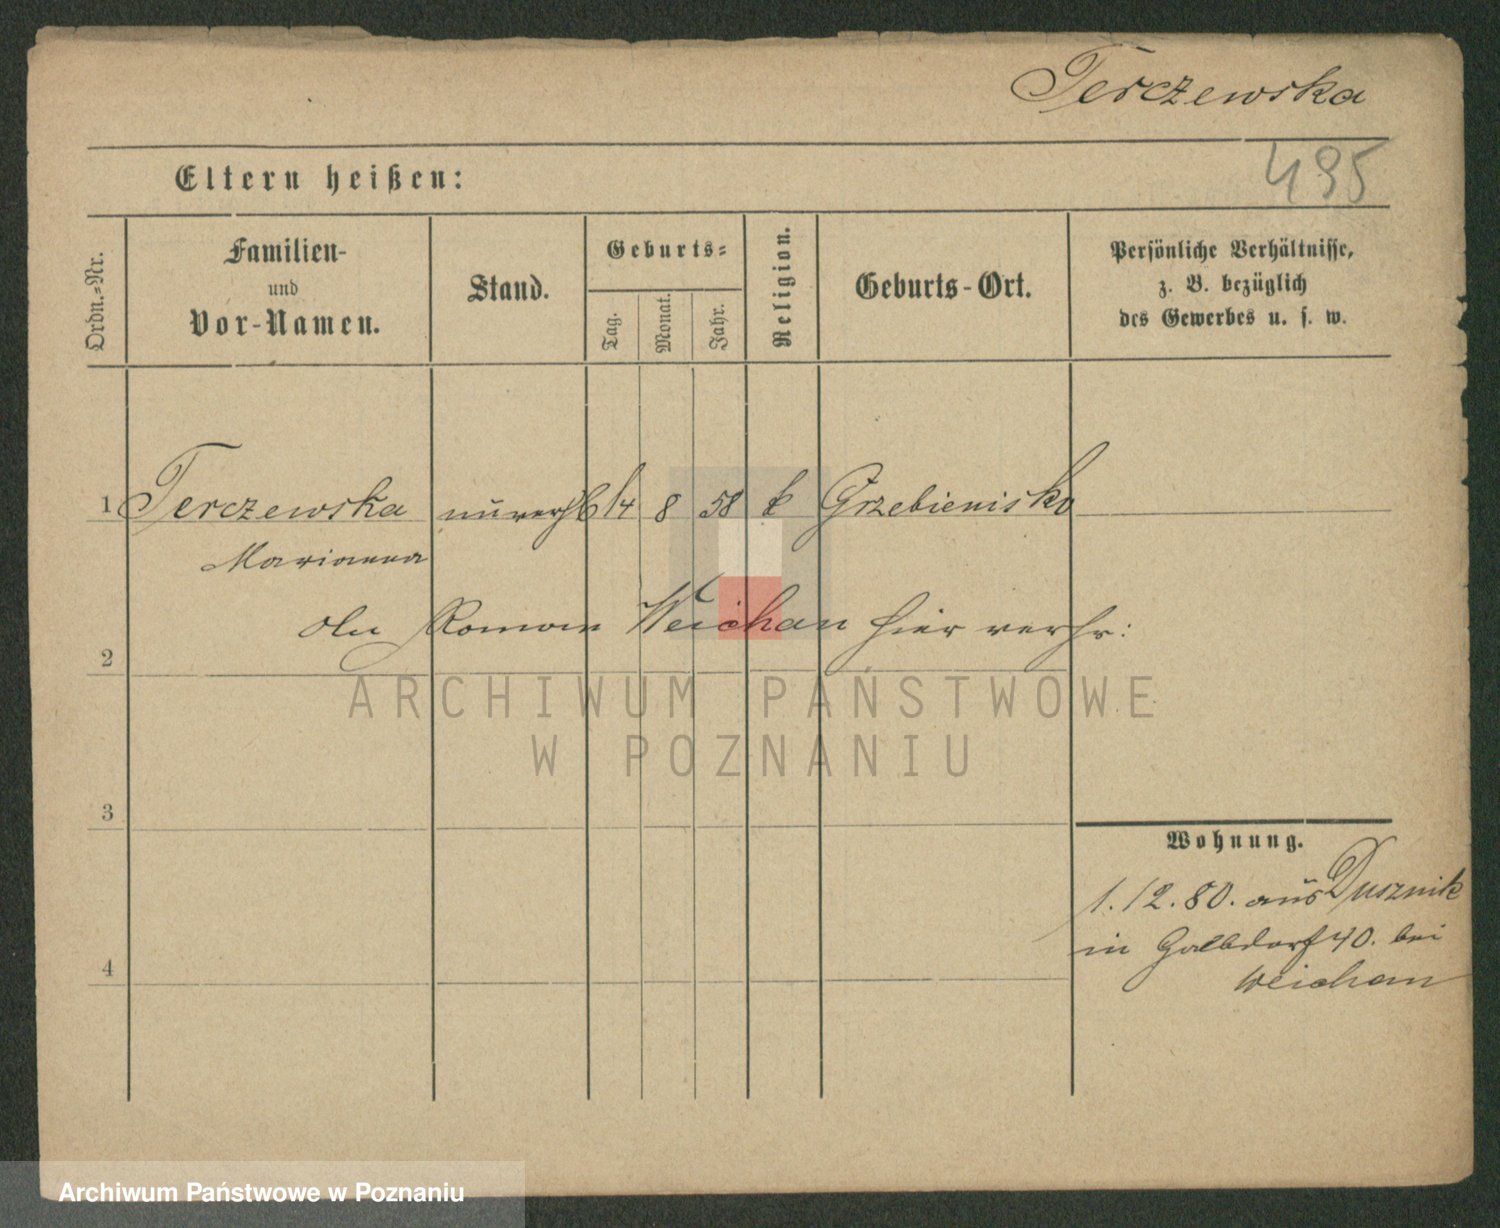 Terczewska
495
Eltern heißen:
Ordn.-Nr.
Familien-
und
Vor-Namen.
Stand.
Geburts-
Tag.
Monat.
Jahr.
Religion.
Geburts-Ort.
Persönliche Verhältnisse,
z. B. bezüglich
des Gewerbes u. s. w.
1 Terczewska 14 8 58 k Grzebienisko
Marianna
Roman Weichan hier verhr:
2
ARCHIWUM PAŃSTWOWE
W POZNANIU
3
Wohnung.
1.12.80. aus Dusznik
in 40. bei
Weichan
4
Archiwum Państwowe w Poznaniu